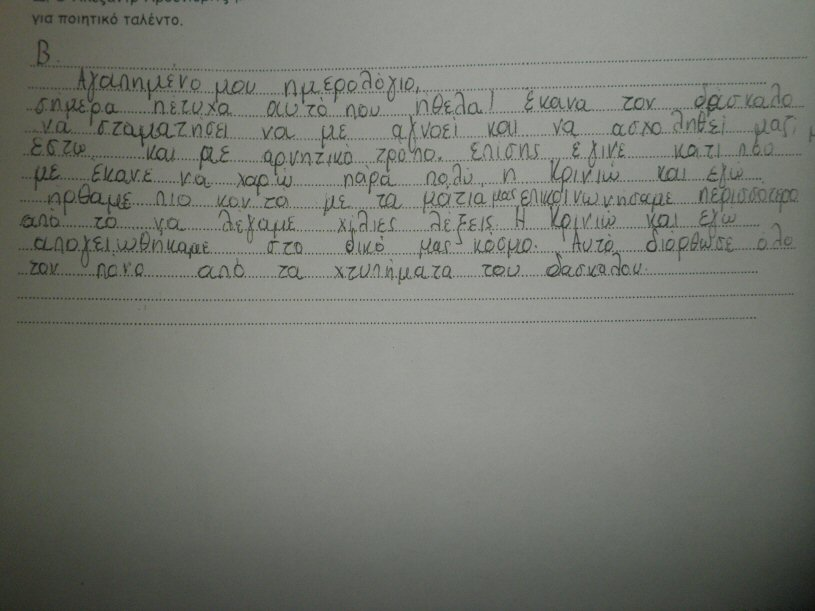 για ποιητικό ταλέντο.
Β.
Αγαπημένο μου ημερολόγιο,
σήμερα πέτυχα αυτό που ήθελα! Έκανα τον δάσκαλο
να σταματήσει να με αγνοεί και να ασχοληθεί μαζί
έστω και με αρνητικό τρόπο. Επίσης έγινε κάτι που
με έκανε να χαρώ πάρα πολύ η Κρινιώ και εγώ
ήρθαμε πιο κοντα με τα μάτια μας επικοινωνήσαμε περισσότερο
απο το να λέγαμε χίλιες λέξεις Η Κρινιώ και εγώ
απογειωθήκαμε στο δικό μας κόσμο. Αυτό διόρθωσε όλο
τον πόνο από τα χτυπήματα του δασκάλου.